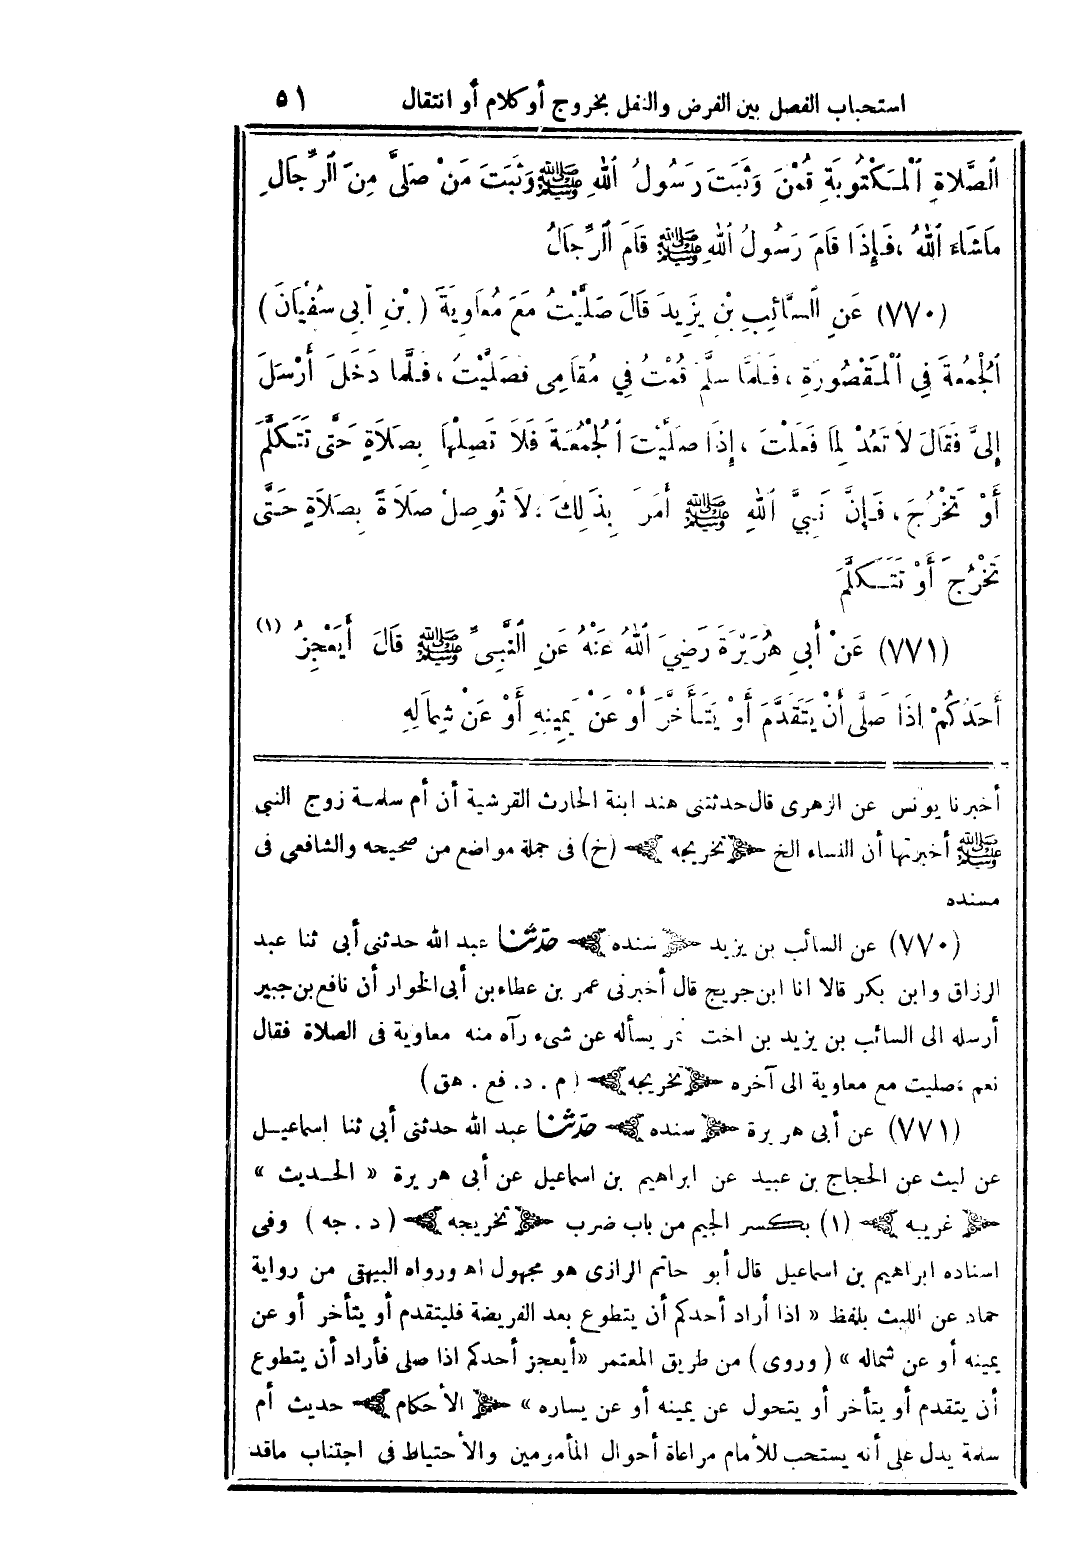 استحباب الفصل بين الفرض والنفل بخروج أو كلام أو انتقال ٥١
ٱلصَّلاَةِ ٱلْمَكْتُوبَةِ قُمْنَ وَثَبَتَ رَسُولُ ٱللهِ ﷺ وَثَبَتَ مَنْ صَلَّى مِنَ ٱلرِّجَالِ
مَاشَاءَ ٱللهُ ، فَإِذَا قَامَ رَسُولُ ٱللهِ ﷺ قَامَ ٱلرِّجَالُ
(٧٧٠) عَنِ ٱلسَّائِبِ بْنِ يَزِيدَ قَالَ صَلَّيْتُ مَعَ مُعَاوِيَةَ ( بْنِ أَبِي سُفْيَانَ )
ٱلْجُمُعَةَ فِي ٱلْمَقْصُورَةِ ، فَلَمَّا سَلَّمَ قُمْتُ فِي مُقَامِى فَصَلَّيْتُ ، فَلَمَّا دَخَلَ أَرْسَلَ
إِلَىَّ فَقَالَ لاَ تَعُدْ لِمَا فَعَلْتَ ، إِذَا صَلَّيْتَ ٱلْجُمُعَةَ فَلاَ تَصِلْهَا بِصَلاَةٍ حَتَّى تَتَكَلَّمَ
أَوْ تَخْرُجَ ، فَإِنَّ نَبِيَّ ٱللهِ ﷺ أَمَرَ بِذَلِكَ ، لاَ تُوصِلْ صَلاَةً بِصَلاَةٍ حَتَّى
تَخْرُجَ أَوْ تَتَكَلَّمَ
(٧٧١) عَنْ أَبِي هُرَيْرَةَ رَضِيَ ٱللهُ عَنْهُ عَنِ ٱلنَّبِيِّ ﷺ قَالَ أَيَعْجِزُ (١)
أَحَدُكُمْ إِذَا صَلَّى أَنْ يَتَقَدَّمَ أَوْ يَتَأَخَّرَ أَوْ عَنْ يَمِينِهِ أَوْ عَنْ شِمَالِهِ
أخبرنا يونس عن الزهرى قال حدثتنى هند ابنة الحارث القرشية أن أم سلمة زوج النبي
ﷺ أخبرتها أن النساء الخ ﴿ تخريجه ﴾ (خ) فى جملة مواضع من صحيحه والشافعى فى
مسنده
(٧٧٠) عن السائب بن يزيد ﴿ سنده ﴾ حدّثنا عبد الله حدثنى أبى ثنا عبد
الرزاق وابن بكر قالا انا ابن جريج قال أخبرنى عمر بن عطاء بن أبى الخوار أن نافع بن جبير
أرسله الى السائب بن يزيد بن اخت نمر يسأله عن شىء رآه منه معاوية فى الصلاة فقال
نعم ، صليت مع معاوية الى آخره ﴿ تخريجه ﴾ (م . د . فع . هق)
(٧٧١) عن أبى هريرة ﴿ سنده ﴾ حدّثنا عبد الله حدثنى أبي ثنا اسماعيل
عن ليث عن الحجاج بن عبيد عن ابراهيم بن اسماعيل عن أبى هريرة « الحديث »
﴿ غريبه ﴾ (١) بكسر الجيم من باب ضرب ﴿ تخريجه ﴾ ( د . جه ) وفى
اسناده ابراهيم بن اسماعيل قال أبو حاتم الرازى هو مجهول اه ورواه البيهقى من رواية
حماد عن الليث بلفظ « اذا أراد أحدكم أن يتطوع بعد الفريضة فليتقدم أو يتأخر أو عن
يمينه أو عن شماله » ( وروى ) من طريق المعتمر « أيعجز أحدكم اذا صلى فأراد أن يتطوع
أن يتقدم أو يتأخر أو يتحول عن يمينه أو عن يساره » ﴿ الأحكام ﴾ حديث أم
سلمة يدل على أنه يستحب للأمام مراعاة أحوال المأمومين والأحتياط فى اجتناب ماقد